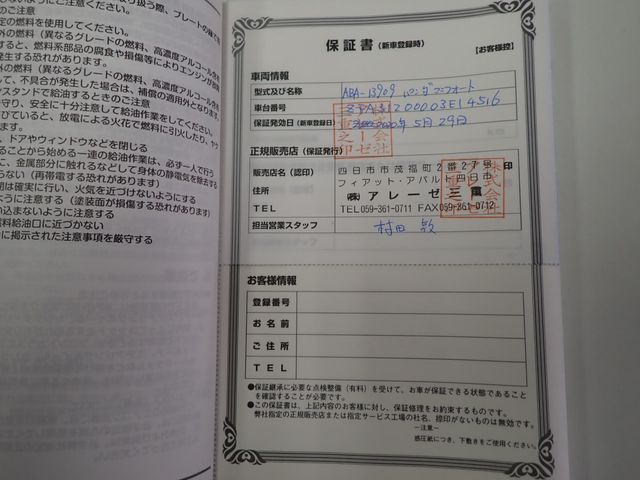 のご注意
定の燃料を使用してください。
外の燃料（異なるグレードの燃料、高濃度アルコール含有
すると、燃料系部品の腐食や損傷等によりエンジンが故障
発生する恐れがあります。
外の燃料（異なるグレードの燃料、高濃度アルコール含有
して、不具合が発生した場合は、補償の適用外となります。
スタンドで給油するときのご注意
守り、安全に十分注意して給油作業をしてください。
びていると、放電による火花で燃料に引火したり、やけ
、ドアやウィンドウなどを閉じる
ることから始める一連の給油作業は、必ず一人で行う
に、金属部分に触れるなどして身体の静電気を除去する
らない（再帯電する恐れがあります）
閉は確実に行い、火気を近づけないようにする
ように注意する（塗装面が損傷する恐れがあります）
込まないように注意する
燃料給油口に近づかない
に掲示された注意事項を厳守する
保証書（新車登録時）
【お客様控】
車両情報
型式及び名称 ABA-13909
車台番号
保証発効日（新車登録日） 2020年5月29日
正規販売店（保証発行）
販売店名（認印） 四日市市茂福町2番27号 印
フィアット・アバルト四日市
住所 ㈱アレーゼ三重
TEL TEL059-361-0711 FAX059-361-0712
担当営業スタッフ 村田 敦
お客様情報
登録番号
お名前
ご住所
TEL
●保証継承に必要な点検整備（有料）を受けて、お車が保証できる状態であること
を確認することが必要です。
●この保証書は、上記内容のお客様に対し、保証修理をお約束するものです。
弊社指定の正規販売店または指定サービス工場の社名、捺印がないものは無効です。
－注意－
感圧紙につき、下敷きをご使用ください。